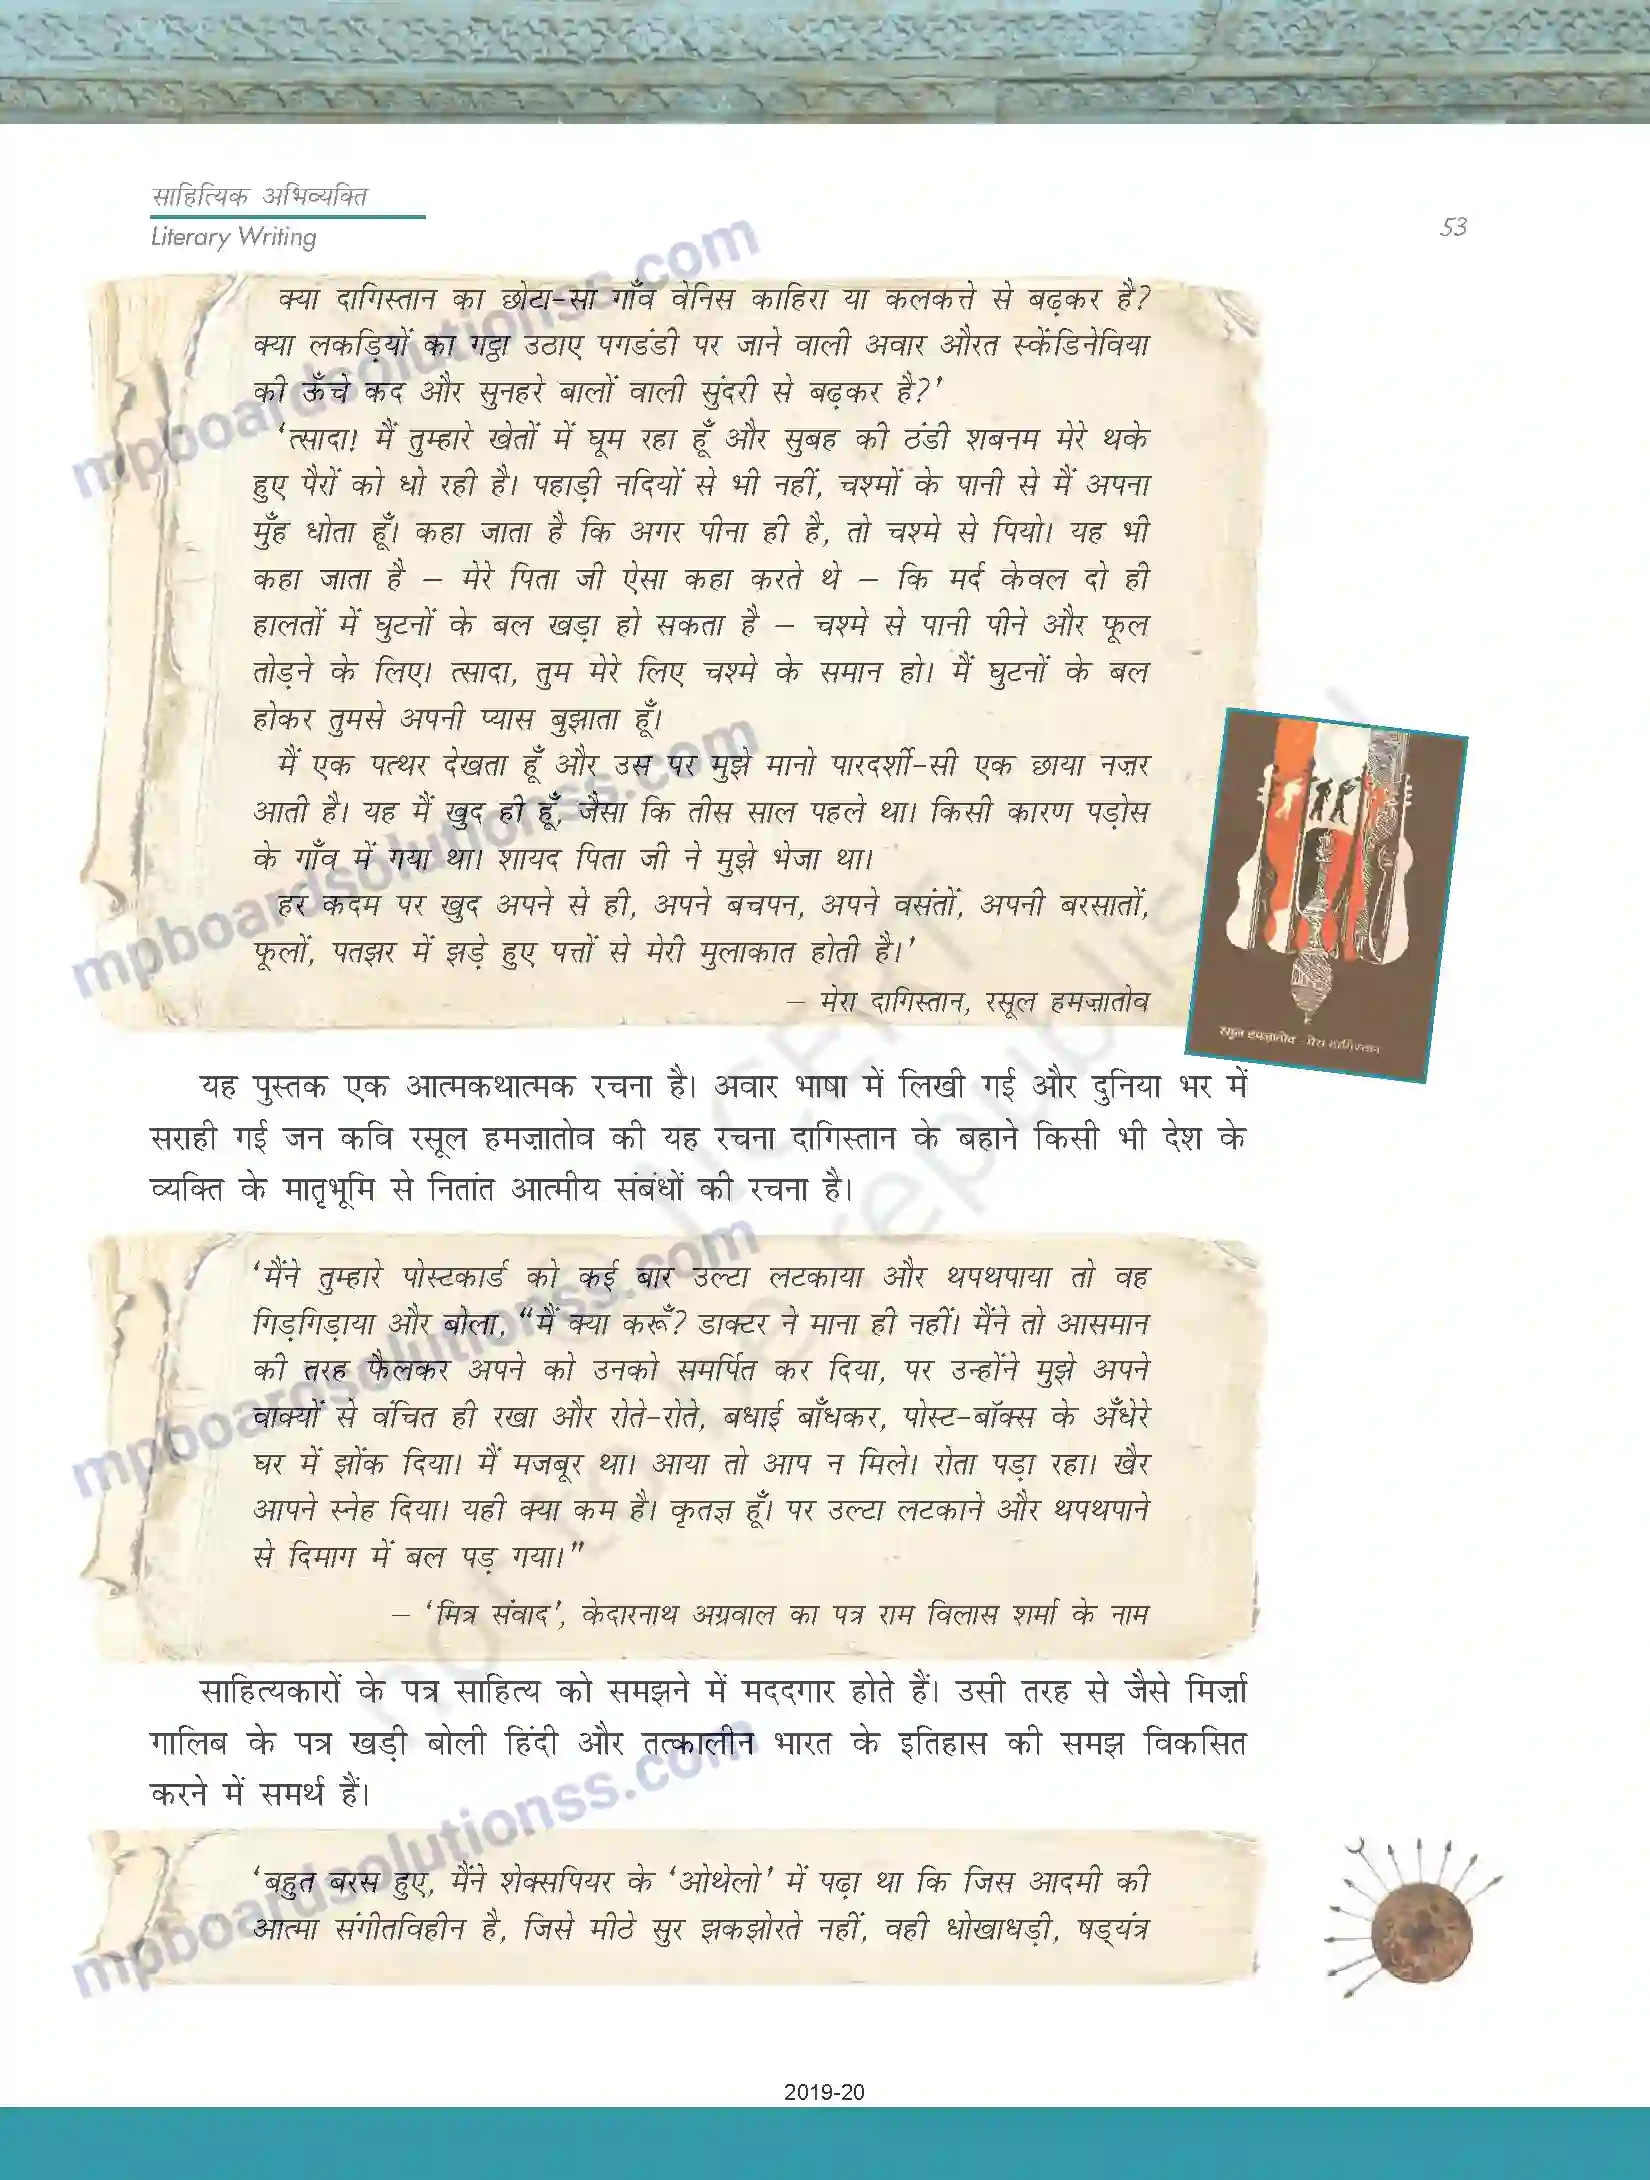 साहित्यिक अभिव्यक्ति
Literary Writing
53
क्या दागिस्तान का छोटा-सा गाँव वेनिस काहिरा या कलकत्ते से बढ़कर है?
क्या लकड़ियों का गट्ठा उठाए पगडंडी पर जाने वाली अवार औरत स्केंडिनेविया
की ऊँचे कद और सुनहरे बालों वाली सुंदरी से बढ़कर है?’
‘त्सादा! मैं तुम्हारे खेतों में घूम रहा हूँ और सुबह की ठंडी शबनम मेरे थके
हुए पैरों को धो रही है। पहाड़ी नदियों से भी नहीं, चश्मों के पानी से मैं अपना
मुँह धोता हूँ। कहा जाता है कि अगर पीना ही है, तो चश्मे से पियो। यह भी
कहा जाता है – मेरे पिता जी ऐसा कहा करते थे – कि मर्द केवल दो ही
हालतों में घुटनों के बल खड़ा हो सकता है – चश्मे से पानी पीने और फूल
तोड़ने के लिए। त्सादा, तुम मेरे लिए चश्मे के समान हो। मैं घुटनों के बल
होकर तुमसे अपनी प्यास बुझाता हूँ।
मैं एक पत्थर देखता हूँ और उस पर मुझे मानो पारदर्शी-सी एक छाया नज़र
आती है। यह मैं खुद ही हूँ, जैसा कि तीस साल पहले था। किसी कारण पड़ोस
के गाँव में गया था। शायद पिता जी ने मुझे भेजा था।
हर कदम पर खुद अपने से ही, अपने बचपन, अपने वसंतों, अपनी बरसातों,
फूलों, पतझर में झड़े हुए पत्तों से मेरी मुलाकात होती है।’
– मेरा दागिस्तान, रसूल हमज़ातोव
रसूल हमज़ातोव - मेरा दागिस्तान
यह पुस्तक एक आत्मकथात्मक रचना है। अवार भाषा में लिखी गई और दुनिया भर में
सराही गई जन कवि रसूल हमज़ातोव की यह रचना दागिस्तान के बहाने किसी भी देश के
व्यक्ति के मातृभूमि से नितांत आत्मीय संबंधों की रचना है।
‘मैंने तुम्हारे पोस्टकार्ड को कई बार उल्टा लटकाया और थपथपाया तो वह
गिड़गिड़ाया और बोला, “मैं क्या करूँ? डाक्टर ने माना ही नहीं। मैंने तो आसमान
की तरह फैलकर अपने को उनको समर्पित कर दिया, पर उन्होंने मुझे अपने
वाक्यों से वंचित ही रखा और रोते-रोते, बधाई बाँधकर, पोस्ट-बॉक्स के अँधेरे
घर में झोंक दिया। मैं मजबूर था। आया तो आप न मिले। रोता पड़ा रहा। खैर
आपने स्नेह दिया। यही क्या कम है। कृतज्ञ हूँ। पर उल्टा लटकाने और थपथपाने
से दिमाग में बल पड़ गया।”
– ‘मित्र संवाद’, केदारनाथ अग्रवाल का पत्र राम विलास शर्मा के नाम
साहित्यकारों के पत्र साहित्य को समझने में मददगार होते हैं। उसी तरह से जैसे मिर्ज़ा
गालिब के पत्र खड़ी बोली हिंदी और तत्कालीन भारत के इतिहास की समझ विकसित
करने में समर्थ हैं।
‘बहुत बरस हुए, मैंने शेक्सपियर के ‘ओथेलो’ में पढ़ा था कि जिस आदमी की
आत्मा संगीतविहीन है, जिसे मीठे सुर झकझोरते नहीं, वही धोखाधड़ी, षड्यंत्र
2019-20
mpboardsolutionss.com
mpboardsolutionss.com
mpboardsolutionss.com
mpboardsolutionss.com
© NCERT
not to be republished